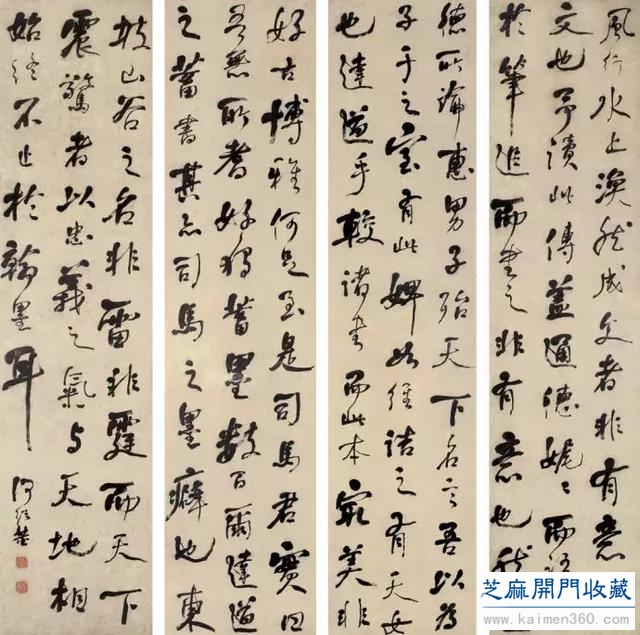 風行水上渙然成文者非有意
文也予讀此傳蓋通德娓娓而語
於筆追而書之非有意也然
德所論惠男子殆天下名言吾以為
子于之室有此婢如經詰之有天女
也達道手較諸書而此本最美非
好古博雅何足至是司馬君實曰
吾無所耆好獨蓄墨數百爾達道
之蓄書其亦司馬之墨癖也東
坡山谷之名非雷非霆而天下
震驚者以忠義之氣与天地相
始終不止於翰墨耳 何紹基
芝麻開門收藏
www.kaimen360.com